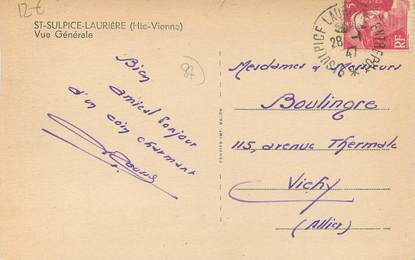 12 €
ST-SULPICE-LAURIÈRE (Hte-Vienne)
Vue Générale
87
Bien
amical bonjour
d'un coin charmant
Mesdames & Messieurs
Boulingre
115, avenue Thermale
Vichy
(Allier)
ST SULPICE LAU
28
47
RF